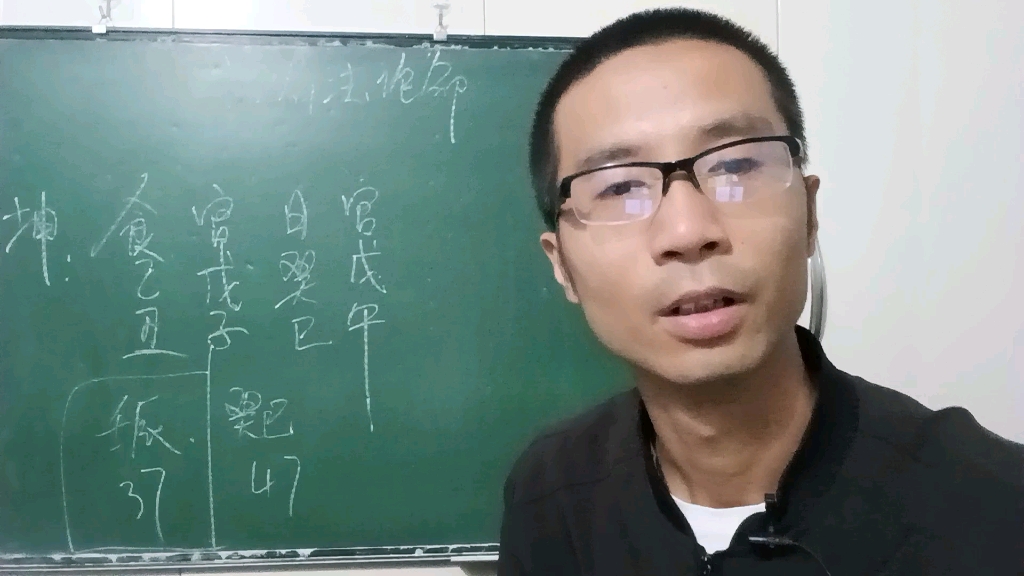 法 部
坤: 食 官 日 官
乙 戊 癸 戊
丑 子 巳 午
壬辰. 癸巳
37 47